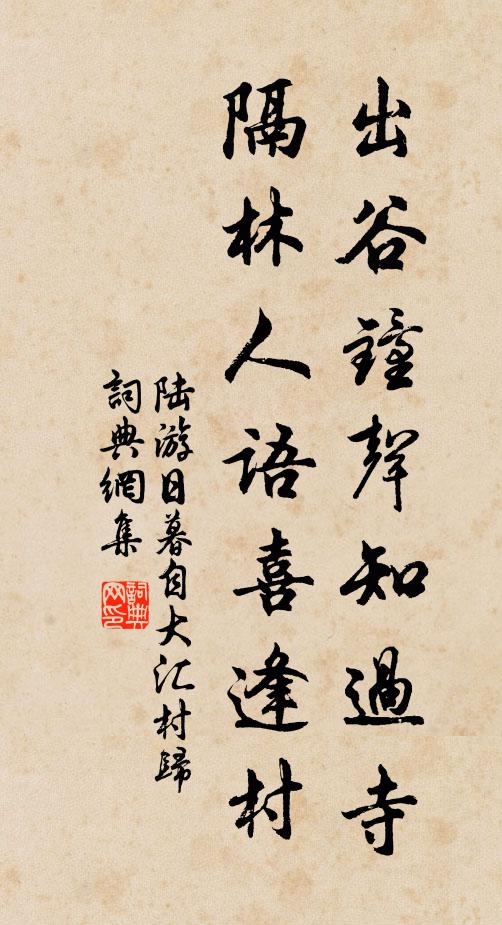 出谷鐘聲知過寺
隔林人語喜逢村
陆游日暮自大汇村歸
詞典網集
詞典
网印